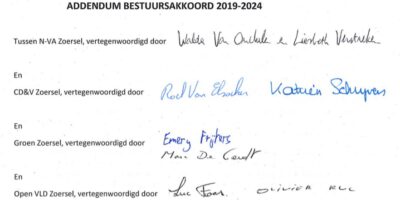 ADDENDUM BESTUURSAKKOORD 2019-2024
Tussen N-VA Zoersel, vertegenwoordigd door Walda Van en Liesbeth Verstreken
En
CD&V Zoersel, vertegenwoordigd door Roel Van Elsacker Katrien Schryvers
En
Groen Zoersel, vertegenwoordigd door Emery Frijters
Marc De
En
Open VLD Zoersel, vertegenwoordigd door Luc OLIVIER